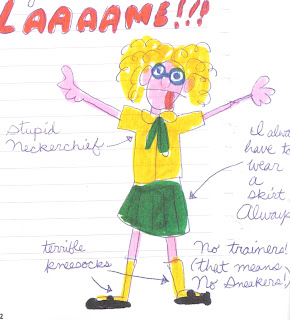 LAAAAME!!!
stupid
Neckerchief
I alwa
have to
wear
a
skirt.
Always
terrible
kneesocks
No trainers!
(that means
No sneakers!)
2